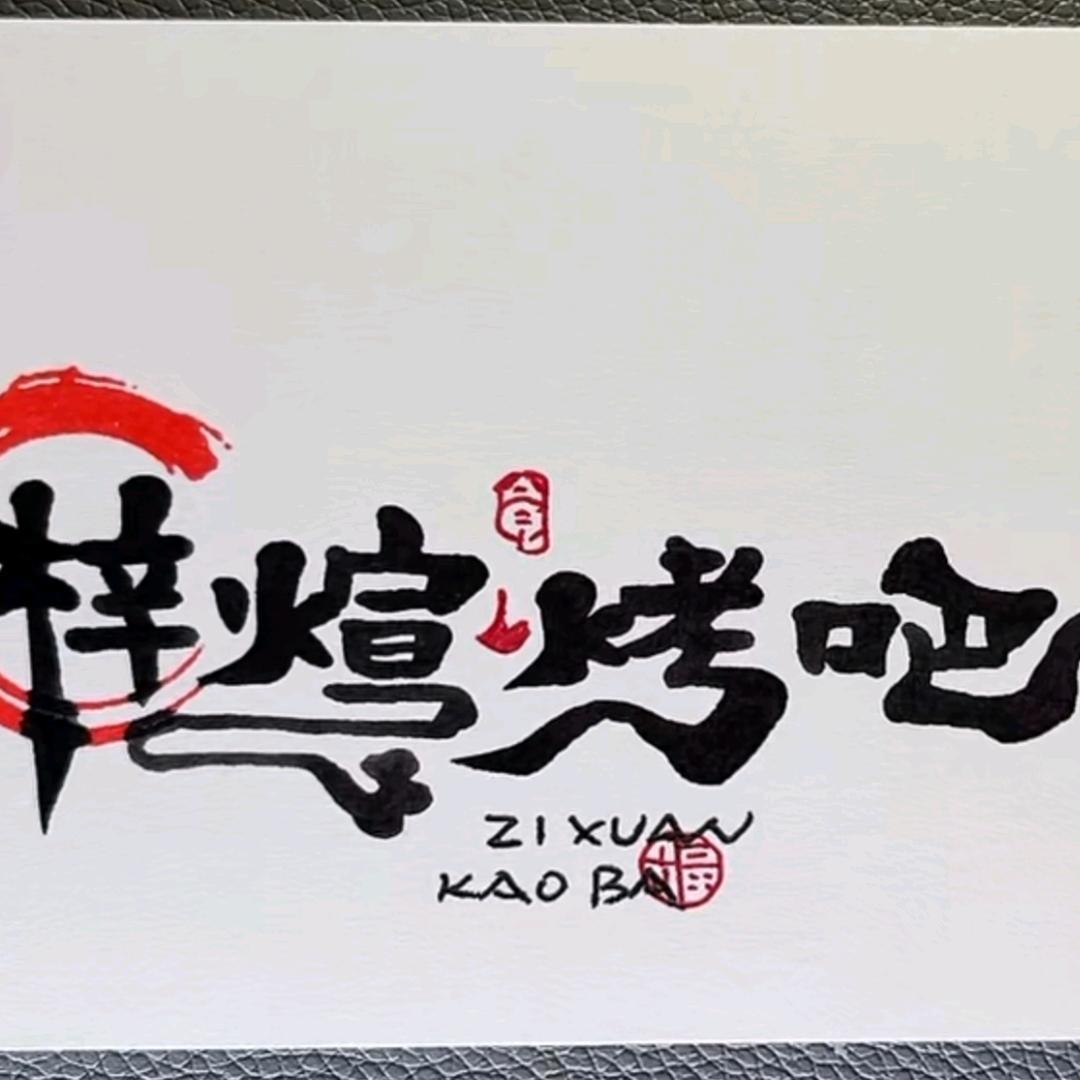 梓煊烤吧
ZI XUAN
KAO BA
福